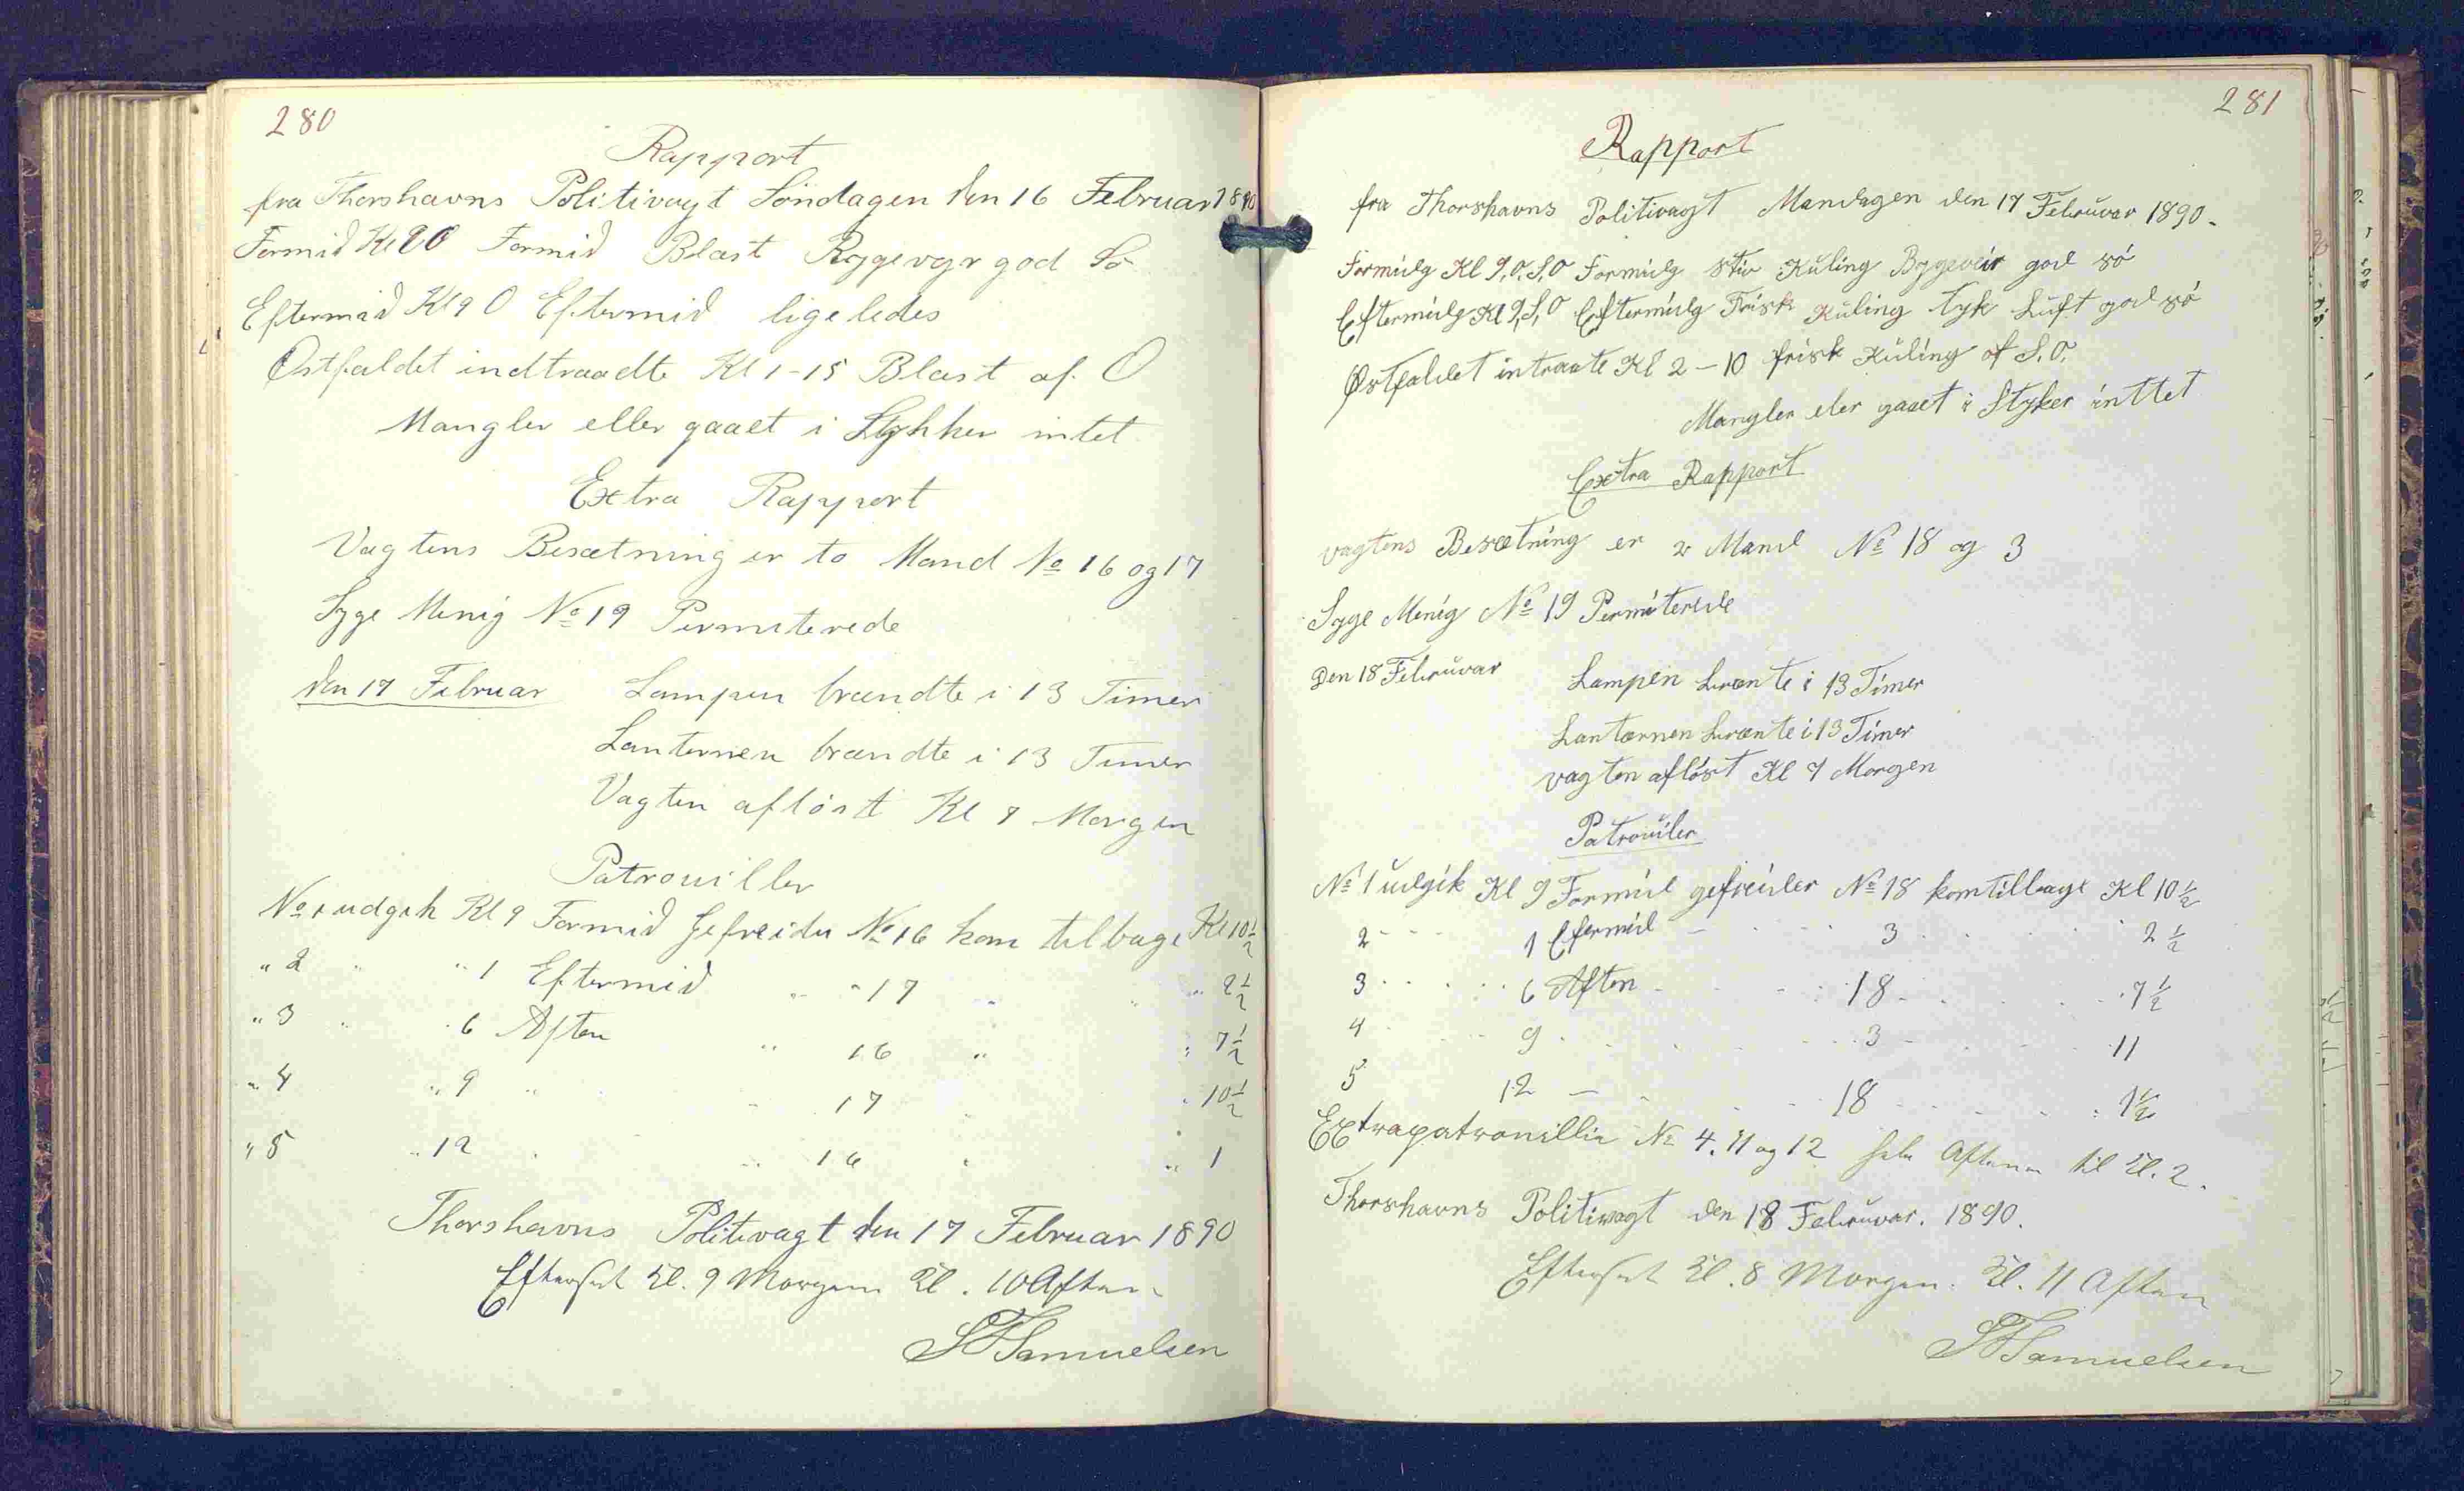 280
Rapport
fra Thorshavns Politivagt Søndagen den 16 Februar 1890
Formid Kl 9 O Formid Blæst Bygevejr god Sö
Eftermid Kl 9 O Eftermid ligeledes
Östfaldet indtraadte Kl 1-15 Blæst af O
Mangler eller gaaet i Stykker intet
Extra Rapport
Vagtens Besætning er to Mand No 16 og 17
Syge Menig No 19 Permiterede
den 17 Februar Lampen brændte i 13 Timer
Lanternen brændte i 13 Timer
Vagten aflöst Kl 7 Morgen
Patrouiller
No 1 udgik Kl 9 Formid Gefreider No 16 kom tilbage Kl 10½
" 2 " " 1 Eftermid " " 17 " " " 2½
" 3 " " 6 Aften " 16 " " 7½
" 4 " 9 " " 17 " " 10½
" 5 " 12 " " 16 " " 1
Thorshavns Politivagt den 17 Februar 1890
Efterset Kl. 9 Morgen Kl. 10 Aften
SFSamuelsen
281
Rapport
fra Thorshavns Politivagt Mandagen den 17 Februar 1890.
Formidg Kl 9, O.S,O Formidg Stiv Kuling Bygeveir god sö
Eftermidg Kl 9, S,O Eftermidg Frisk Kuling tyk Luft god sö
Østfaldet intraate Kl 2-10 frisk Kuling af S.O.
Mangler eler gaaet i Styker inttet
Extra Rapport
vagtens Besætning er 2 Mand No 18 og 3
Syge Menig No 19 Permiterede
Den 18 Februar Lampen brænte i 13 Timer
Lantærnen brænte i 13 Timer
vagten aflöst Kl 7 Morgen
Patrouiler
No 1 udgik Kl 9 Formid gefreider No 18 kom tilbage Kl 10½
2 - - - 1 Efermid - - - 3 - - - 2½
3 - - - 6 Aften - - - 18 - - - 7½
4 - - - 9 - - - 3 - - - 11
5 12 - - - 18 - - - 1½
Extrapatrouillie No 4. 11 og 12 hele Aftenen til Kl. 2.
Thorshavns Politivagt den 18 Februar. 1890.
Efterset Kl. 8 Morgen. Kl. 11 Aften
SFSamuelsen